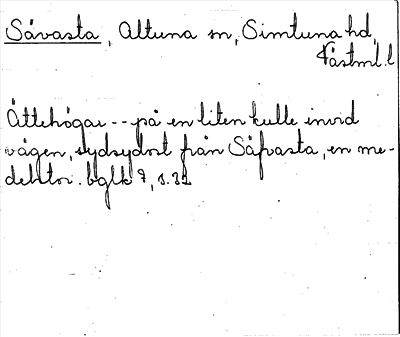 Såvasta, Altuna sn, Simtuna hd,
Västml. l
Ättehögar -- på en liten kulle invid
vägen, sydsydost från Såfvasta, en me-
delstor. bglk 7, s. 32